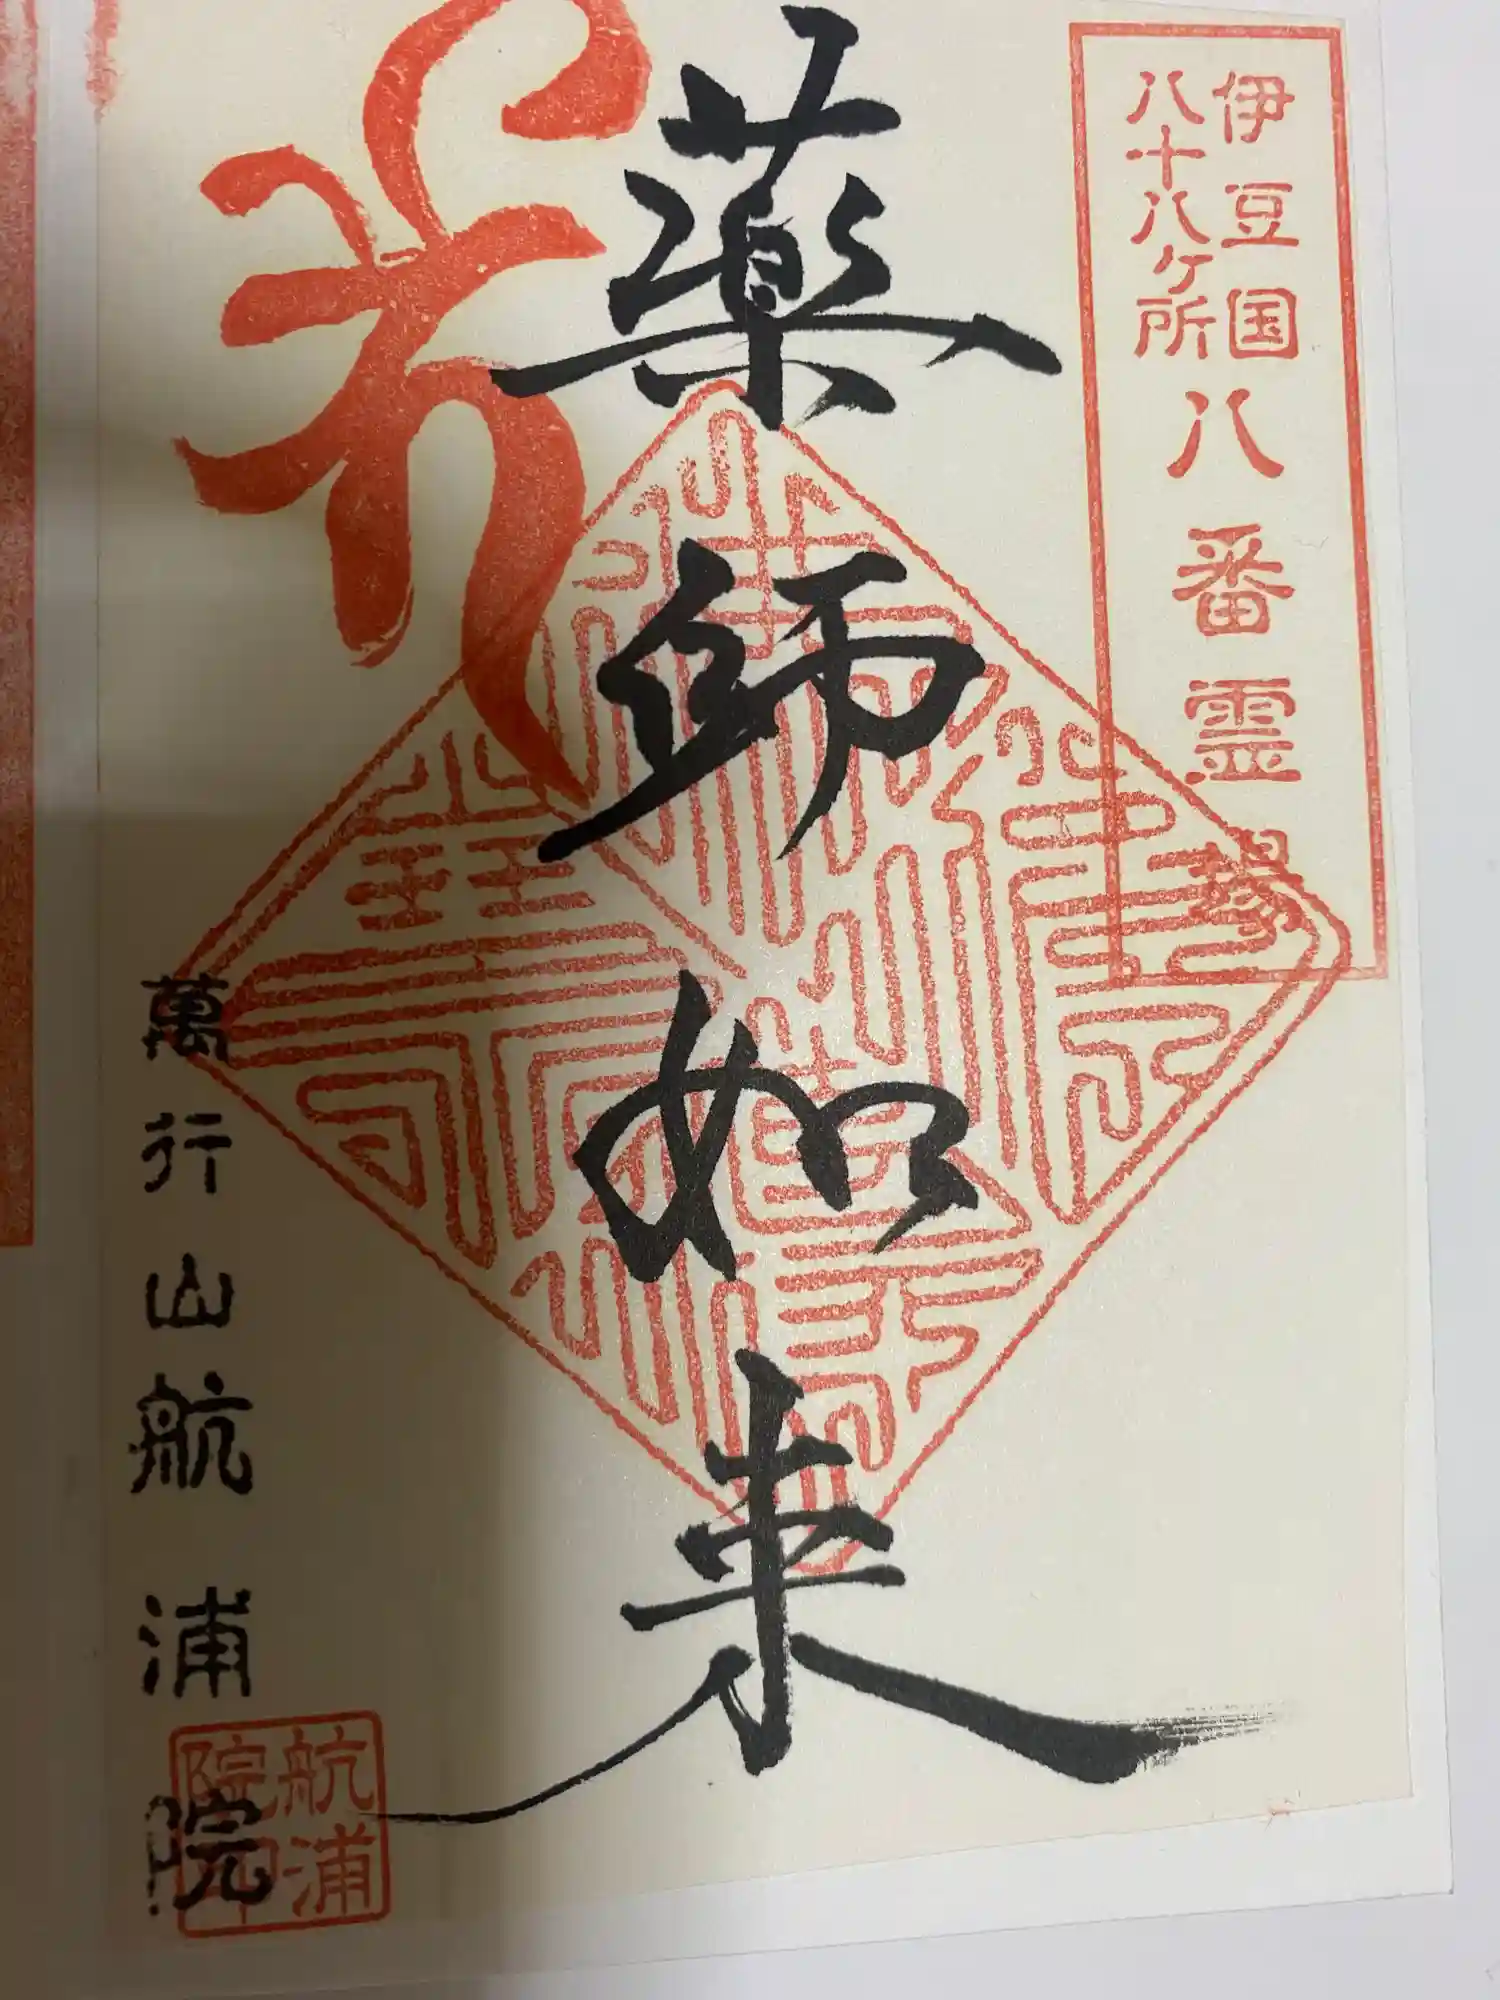 伊豆国
八十八ケ所
八番霊場
薬師如来
萬行山航浦院
航浦
院印